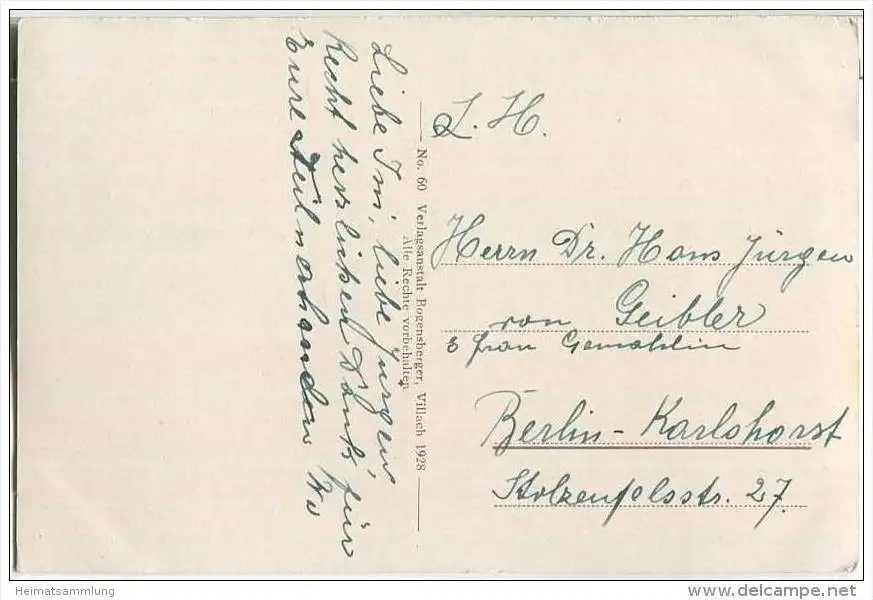 Liebe Imi, liebe Jürgen
Recht herzlichen Dank für
Eure
No. 60 Verlagsanstalt Bogensberger, Villach 1928
Alle Rechte vorbehalten
L. H.
Herrn Dr. Hans Jürgen
von Geibler
& Frau Gemahlin
Berlin-Karlshorst
Stolzenfelsstr. 27.
Heimatsammlung
www.delcampe.net